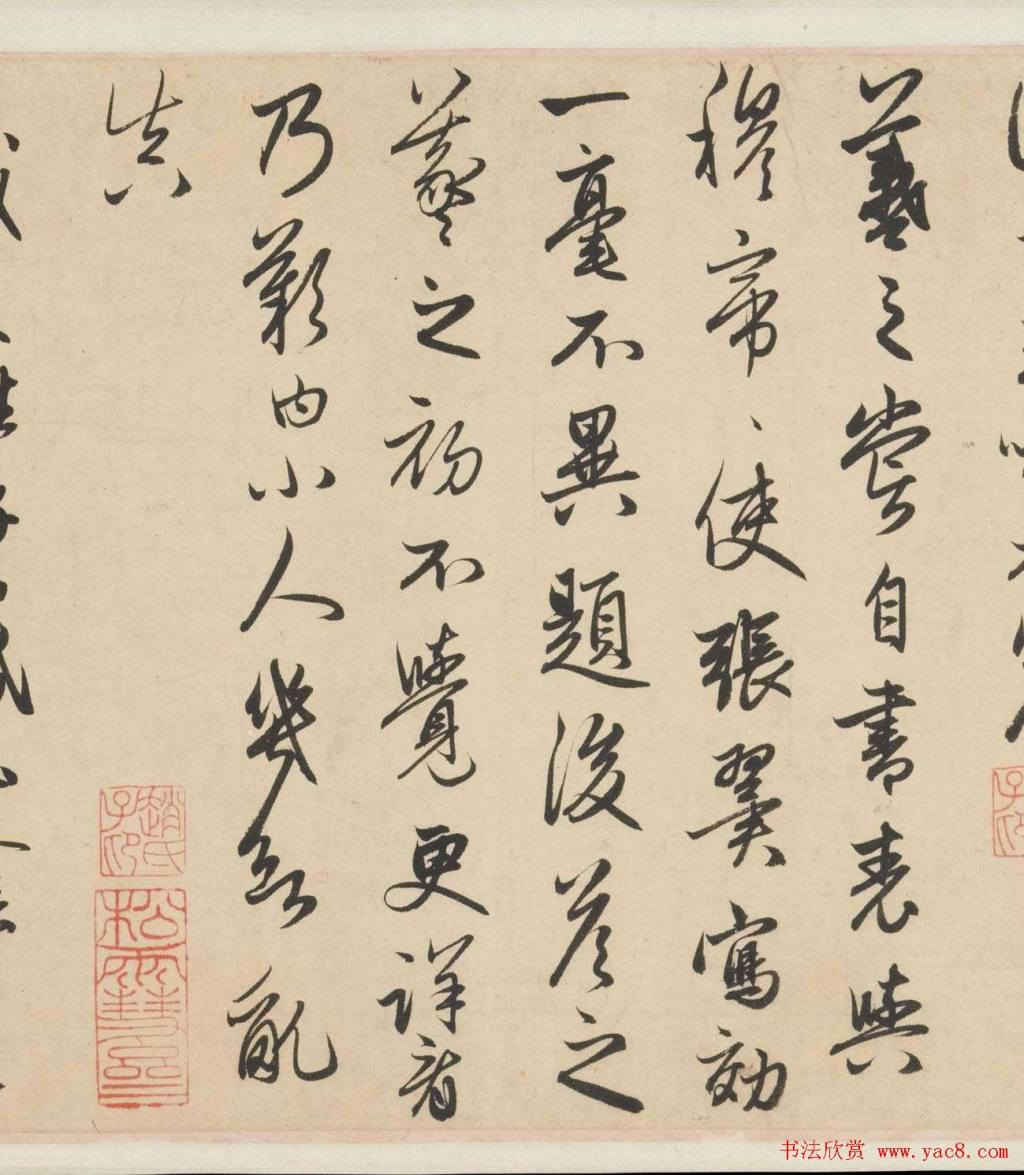 羲之嘗自書表與
穆帝、使張翼寫効
一毫不異題後答之
羲之初不覺更詳看
乃歎曰小人幾欲亂
真
趙氏子昂
书法欣赏 www.yac8.com